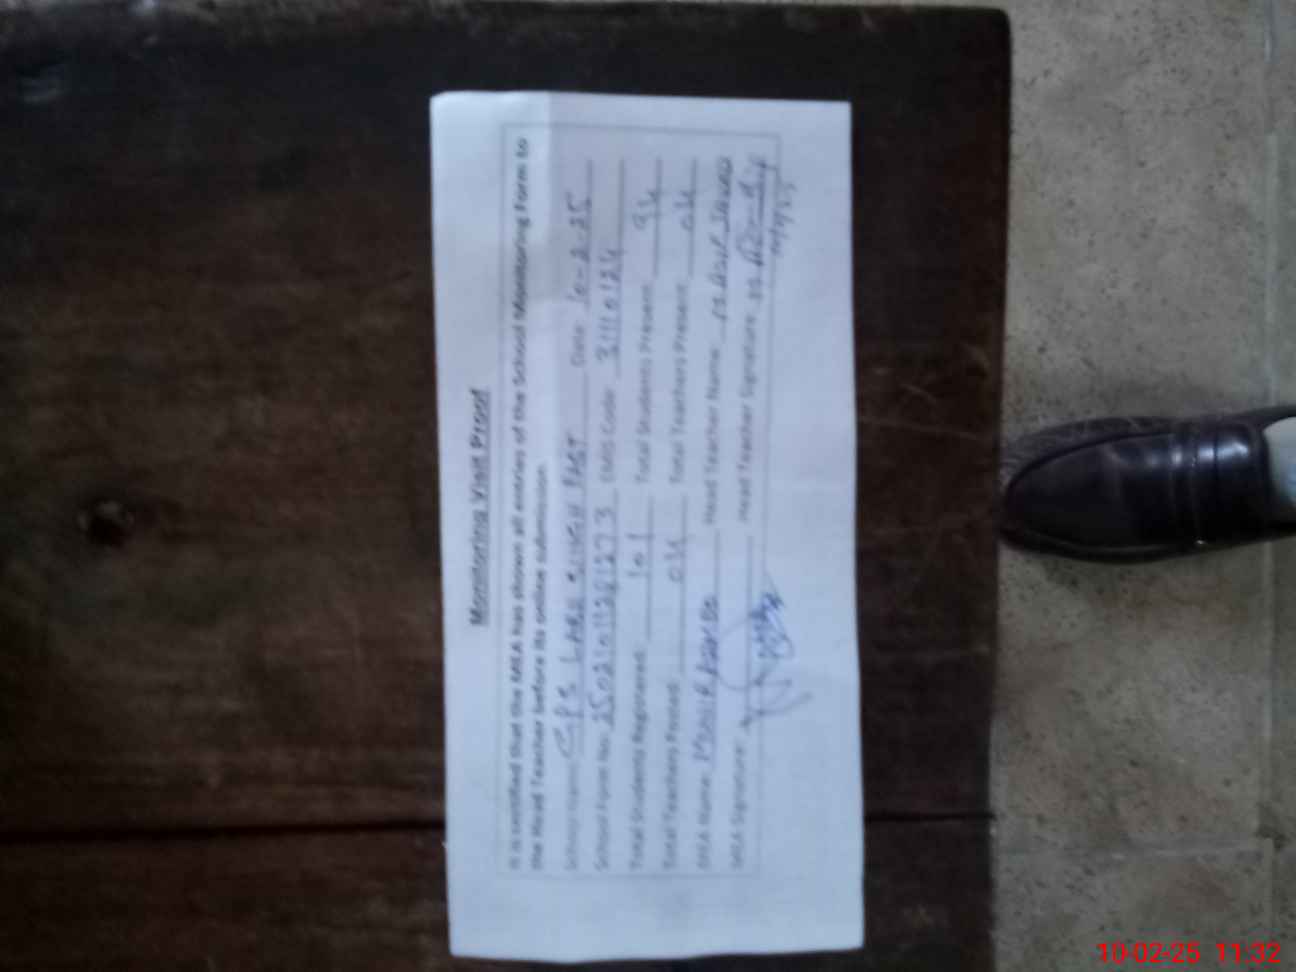 Monitoring Visit Proof
It is certified that the MEA has shown all entries of the School Monitoring Form to
the Head Teacher before its online submission.
School Name: GPS LAKU SINGH PAST Date: 10-2-25
School Form No: 25021011281273 EMIS Code: 31110124
Total Students Registered: 101 Total Students Present: 94
Total Teachers Posted: 04 Total Teachers Present: 04
MEA Name: MUNIR AHMED Head Teacher Name: M. ASIF
MEA Signature: Head Teacher Signature:
10-02-25 11:32